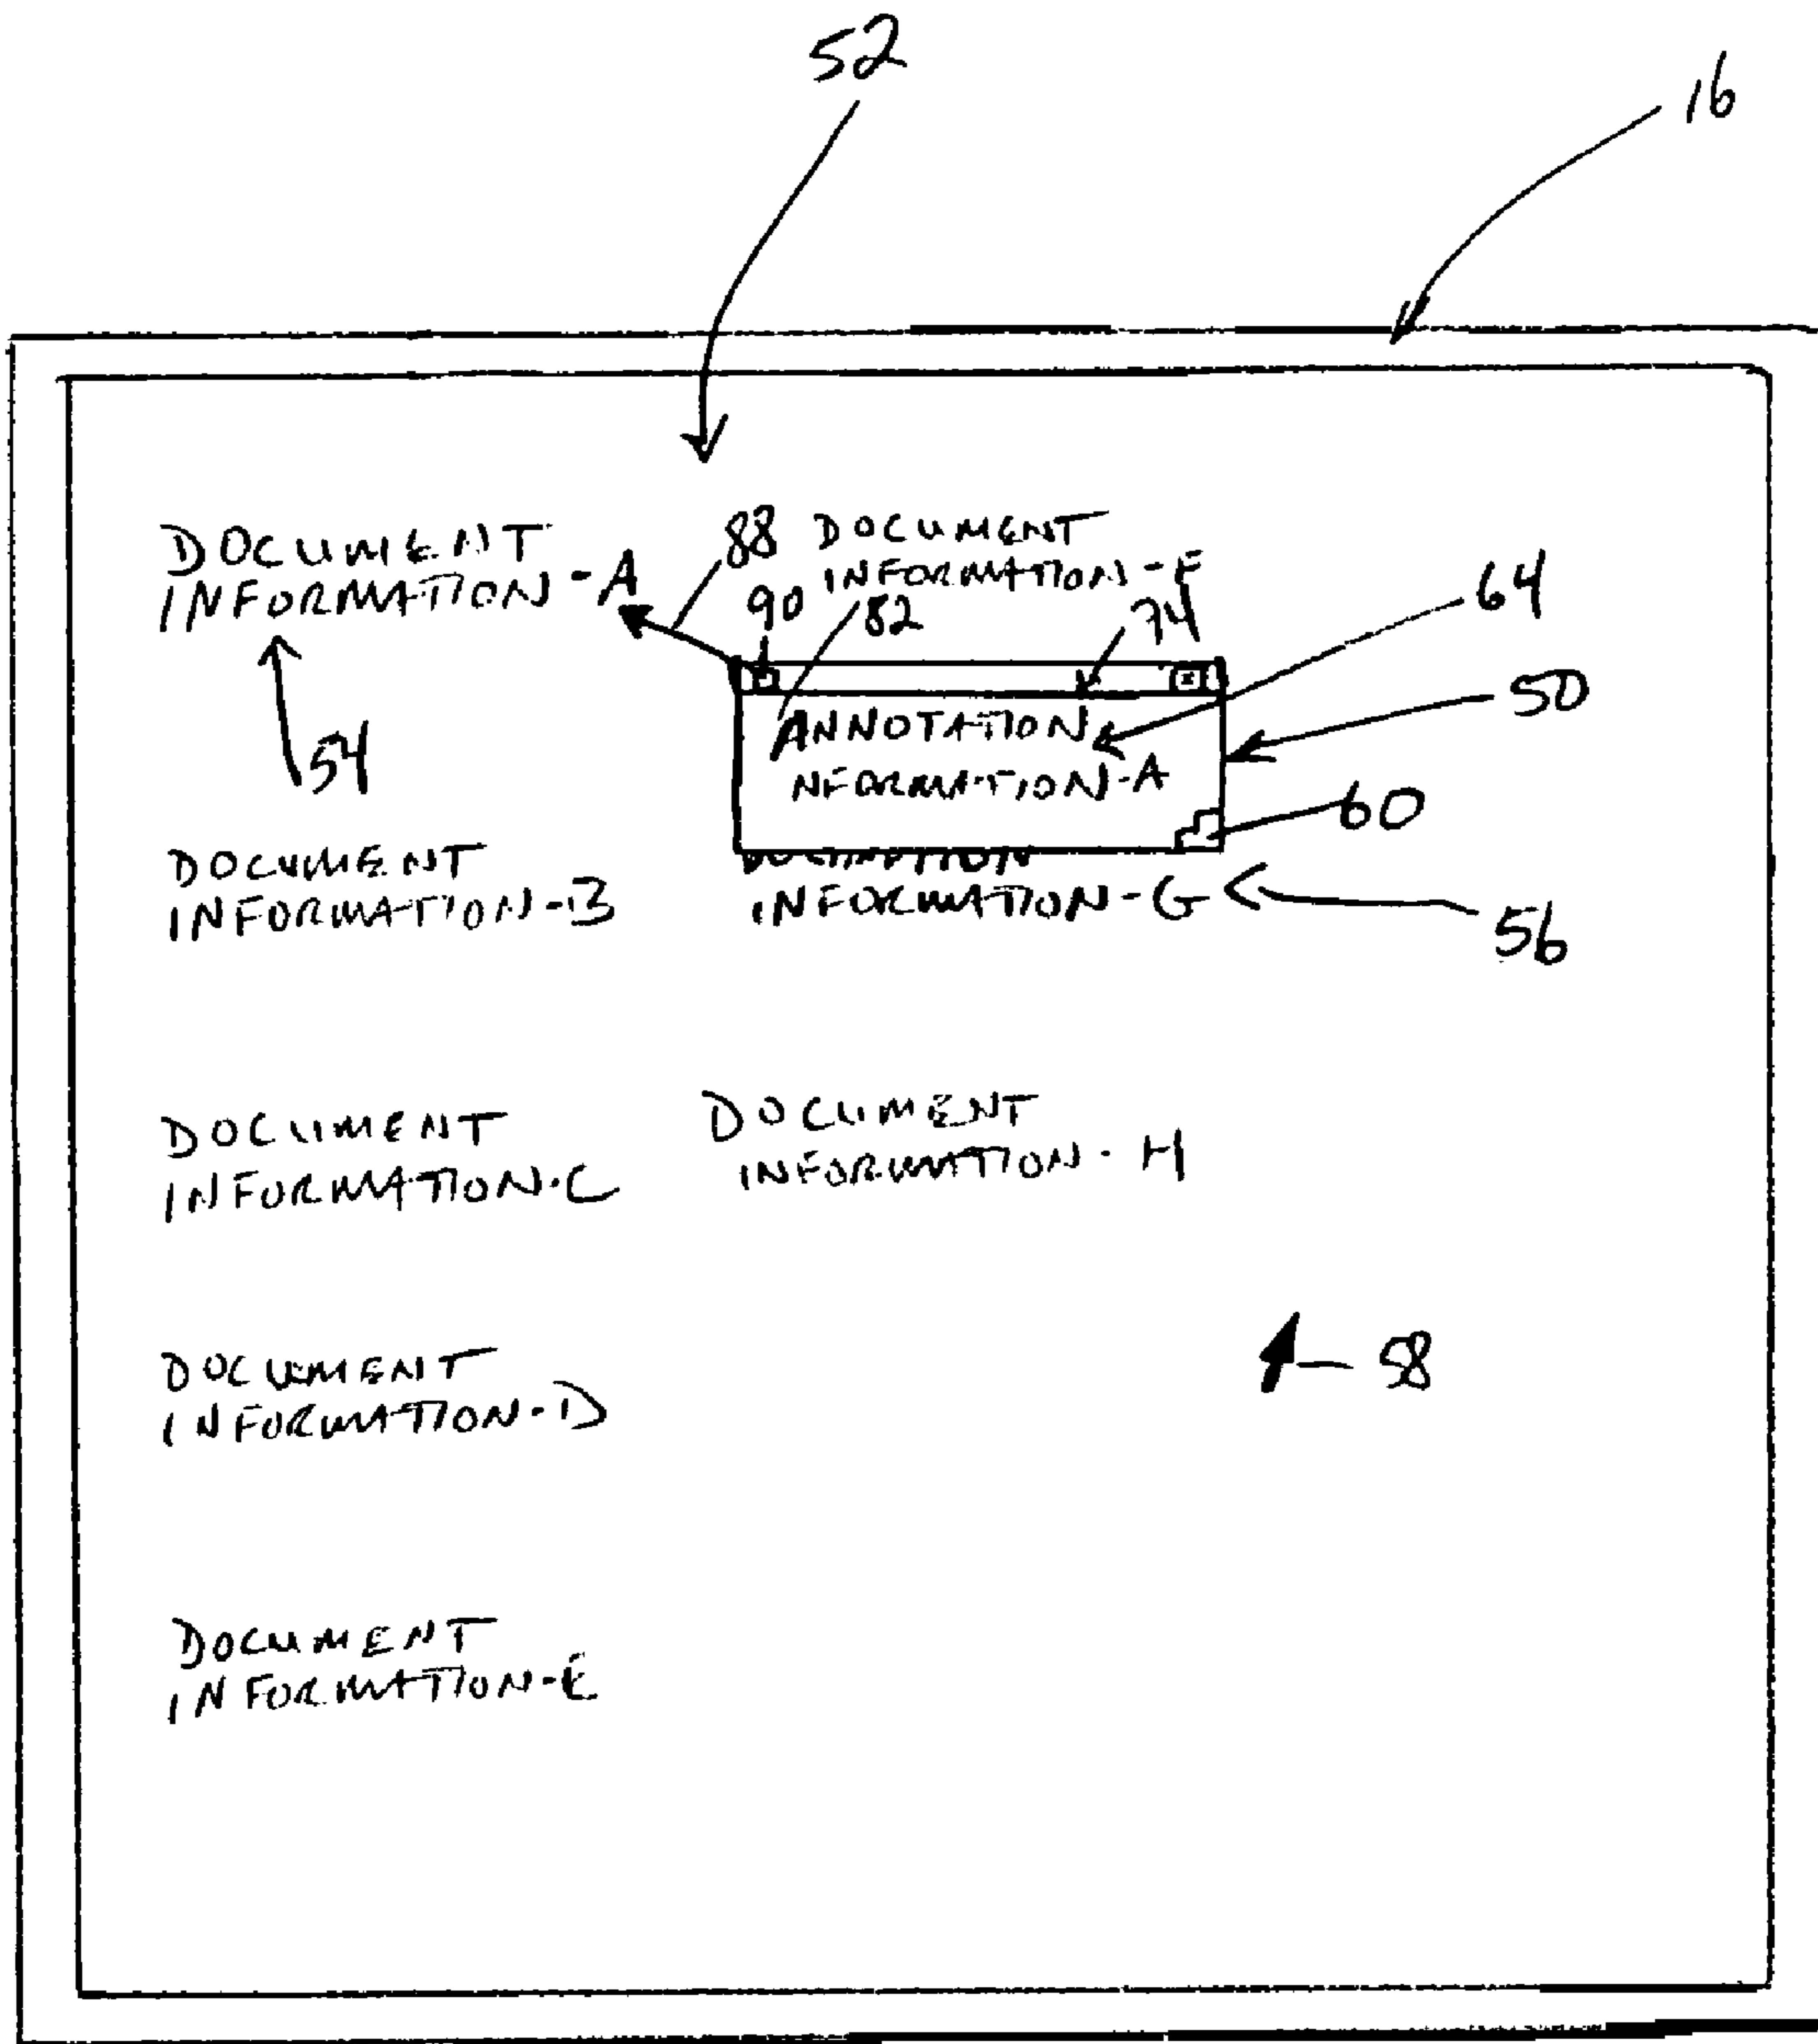 52
16
DOCUMENT
INFORMATION-A
88
DOCUMENT
INFORMATION-F
90
82
74
64
ANNOTATION
NFORMATION-A
50
54
60
DOCUMENT
INFORMATION-B
INFORMATION-G
56
DOCUMENT
INFORMATION-C
DOCUMENT
INFORMATION-H
DOCUMENT
INFORMATION-D
58
DOCUMENT
INFORMATION-E